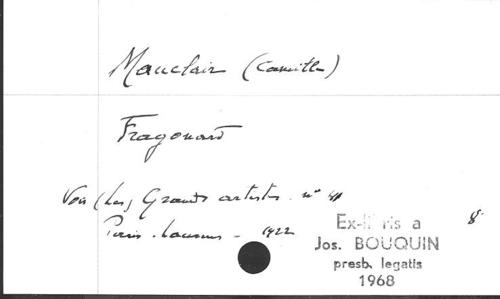 Mauclair (Camille)
Fragonard
Voir (Les) Grands artistes. n°
Paris. Laurens - 1922
8°
Ex-li ris a
Jos. BOUQUIN
presb. legatis
1968